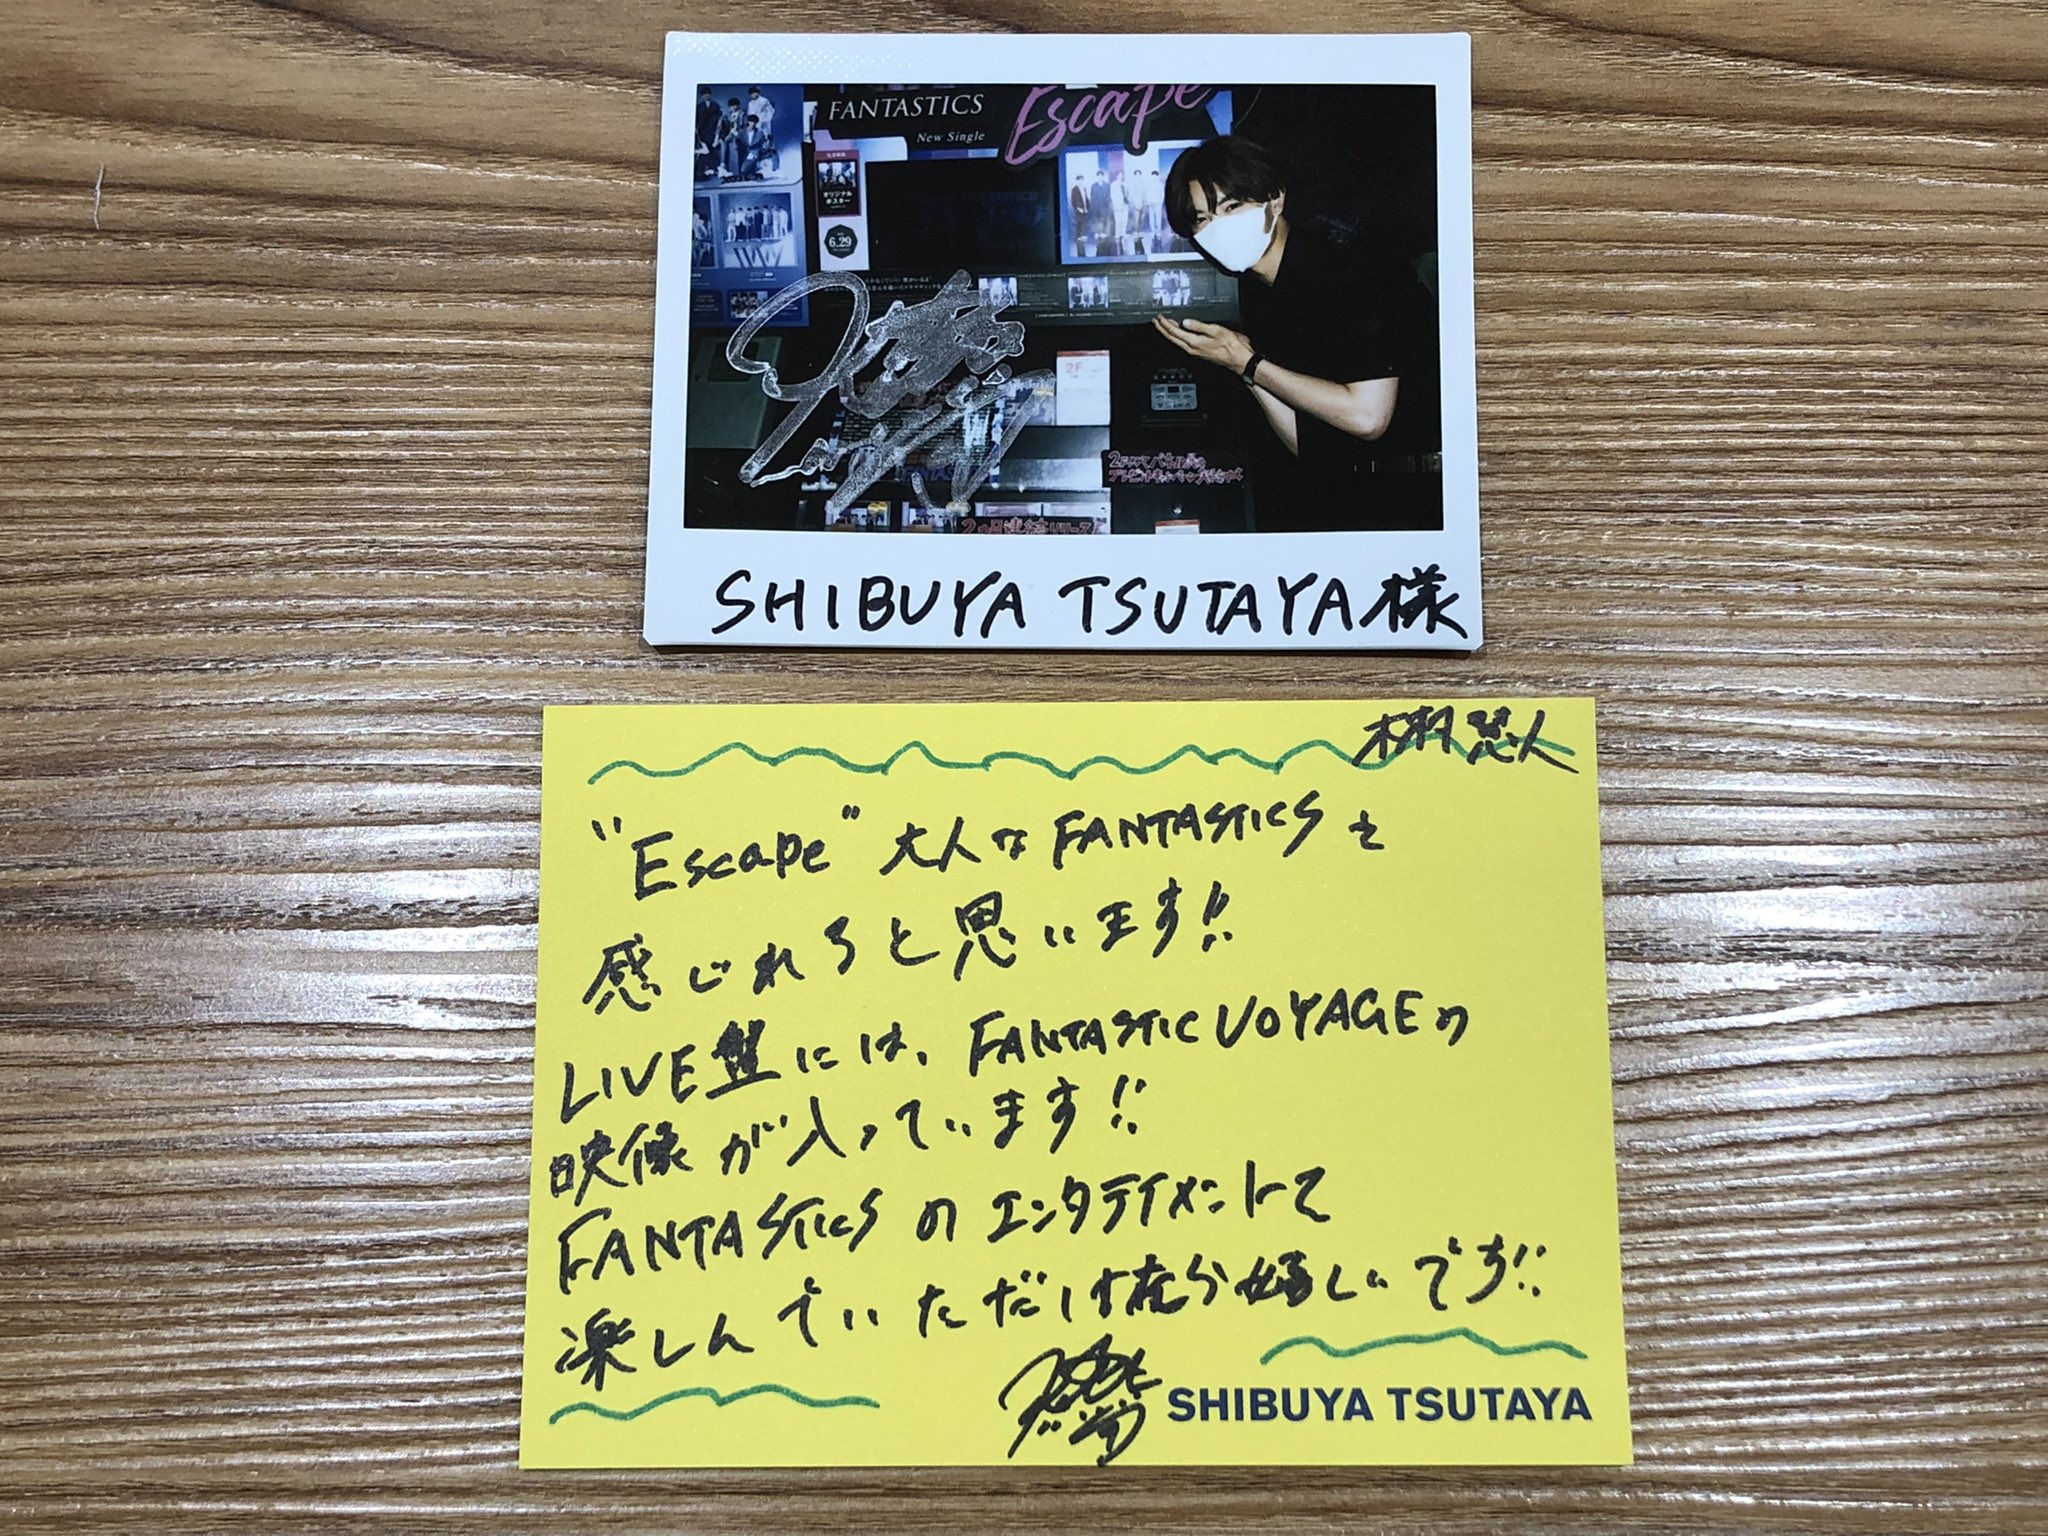 FANTASTICS
New Single
Escape
オリジナル
ポスター
6.29
2F
2Fにてパネル展&
2ヵ月連続リリース
SHIBUYA TSUTAYA様
木村慧人
"Escape" 大人なFANTASTICSを
感じれると思います!!
LIVE盤には、FANTASTIC VOYAGEの
映像が入っています!!
FANTASTICSのエンタテイメントを
楽しんでいただけたら嬉しいです!!
SHIBUYA TSUTAYA